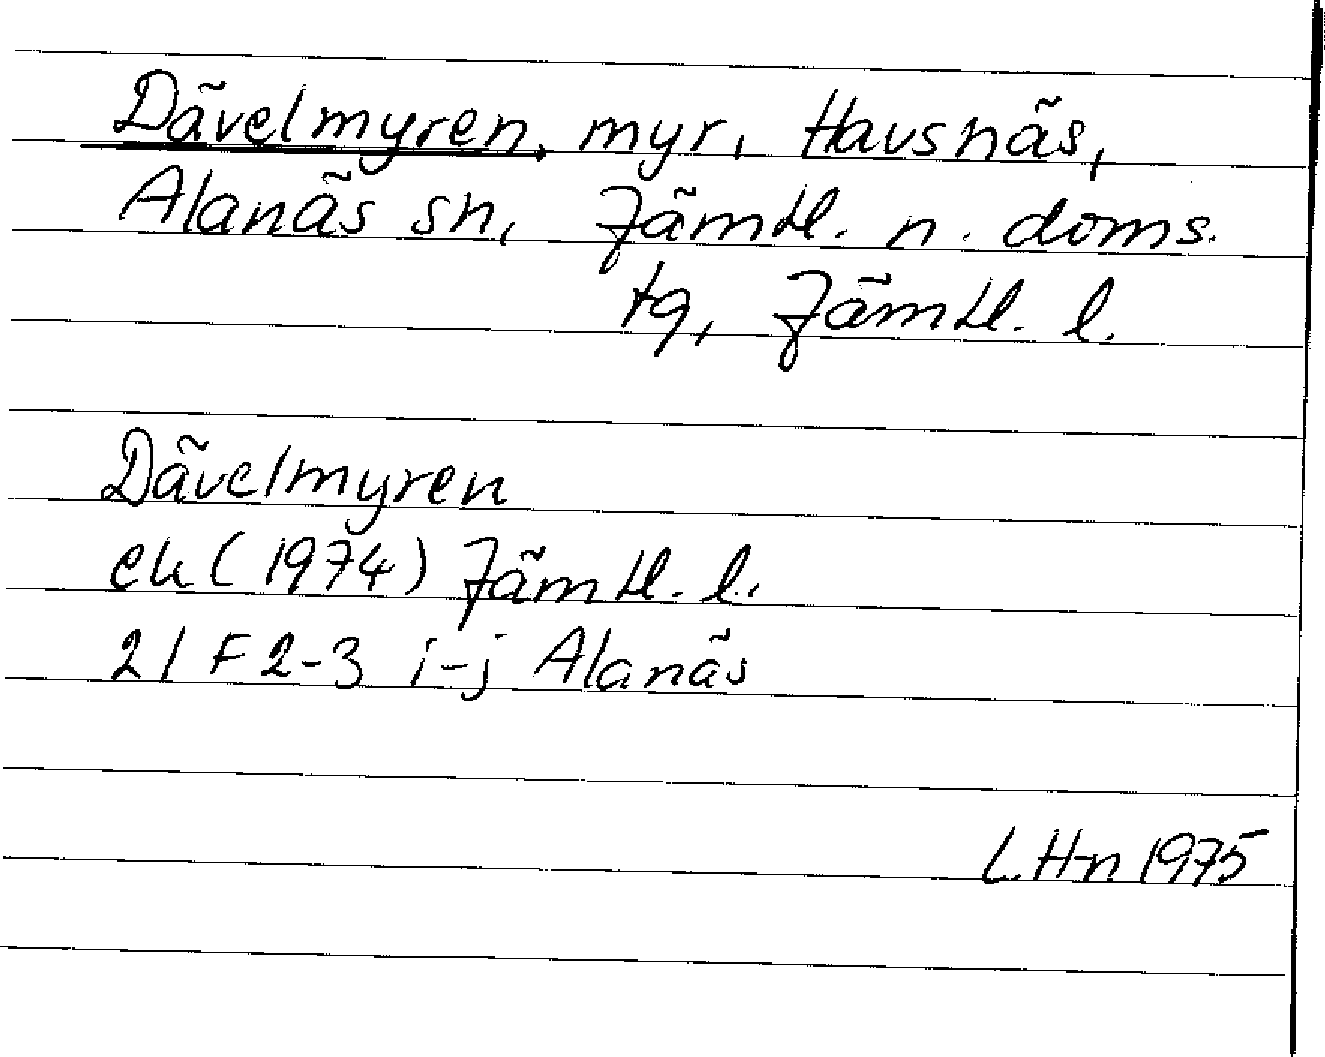 Dävelmyren, myr, Havsnäs,
Alanäs sn, Jämtl. n. doms.
tg, Jämtl. l.
Dävelmyren
ek (1974) Jämtl. l.
21 F 2-3 i-j Alanäs
L.H-n 1975